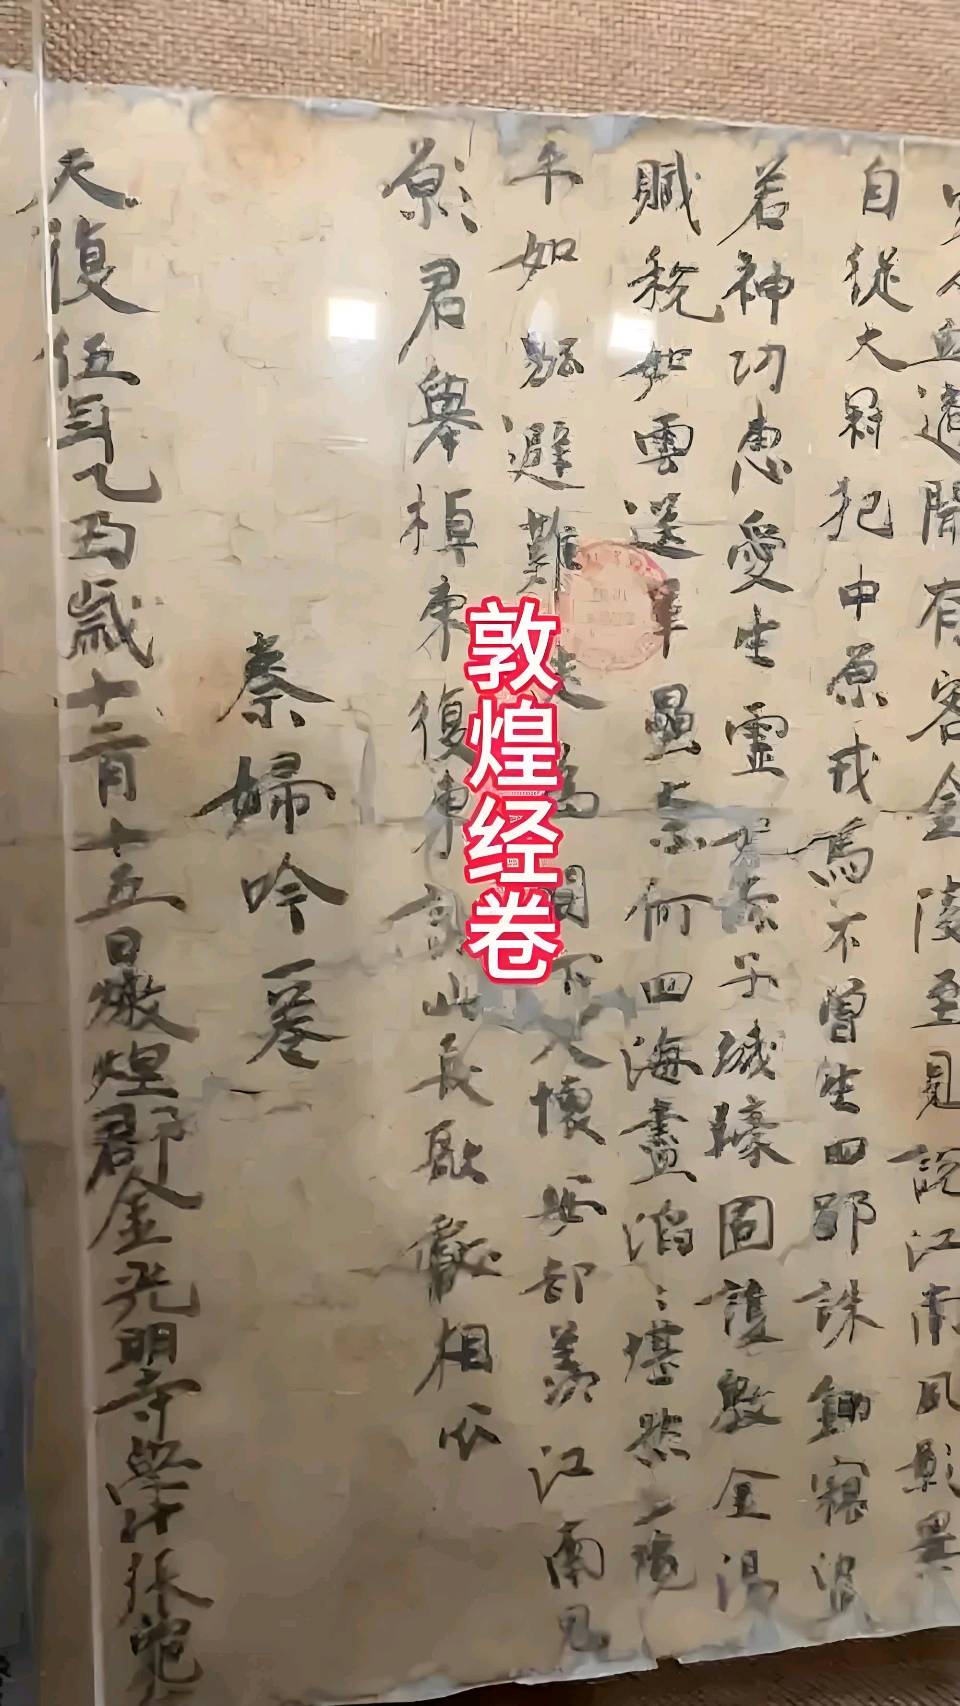 人血適聞有客金陵至見說江南風影異
自從大冦犯中原戎馬不曾生四鄙誅鋤寇盜
若神功惠愛生靈若赤子城壕固護斅金湯
賦稅如雲送軍壘奈何四海盡滔〻堪然一境
平如砥避難走為闕下人懷安却羡江南鬼
願君舉棹東復東詠此長歌獻相公
秦婦吟一卷
天復伍年乙丑歲十二月十五日燉煌郡金光明寺學仕張龜
敦煌经卷